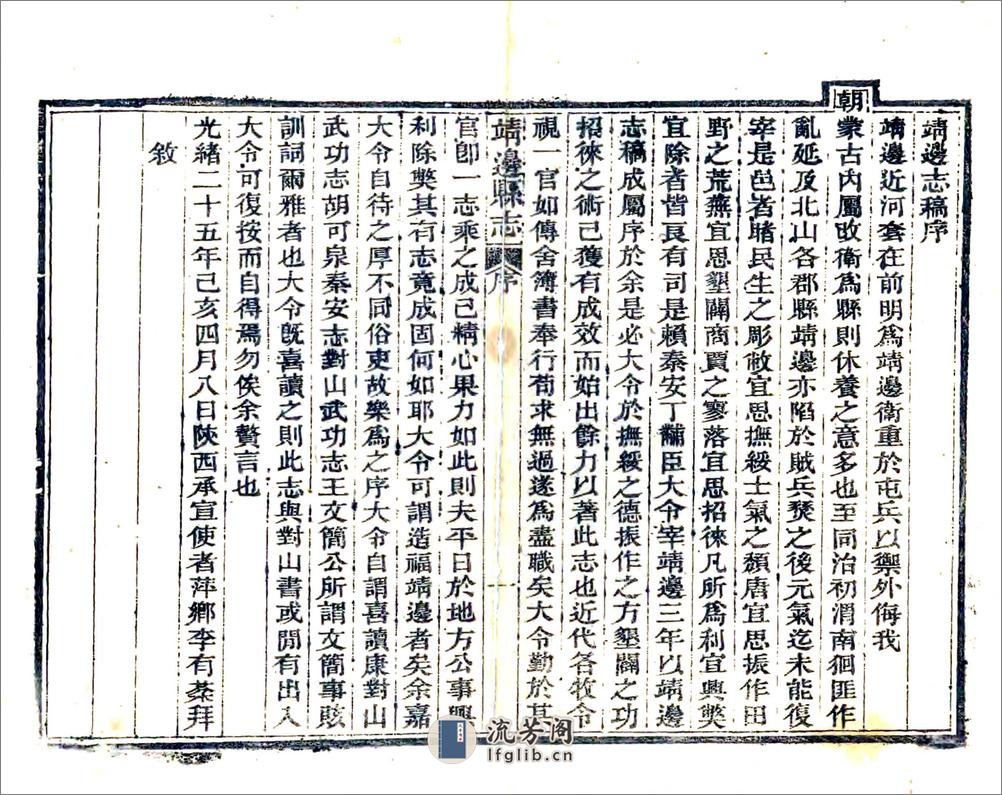 靖邊志稿序
靖邊近河套在前明爲靖邊衛重於屯兵以禦外侮我
朝
蒙古內屬改衛爲縣則休養之意多也至同治初渭南徊匪作
亂延及北山各郡縣靖邊亦陷於賊兵燹之後元氣迄未能復
宰是邑者睹民生之彫敝宜思撫綏士氣之頹唐宜思振作田
野之荒蕪宜思墾闢商賈之寥落宜思招徠凡所爲利宜興獘
宜除者皆良有司是賴秦安丁黼臣大令宰靖邊三年以靖邊
志稿成屬序於余是必大令於撫綏之德振作之方墾闢之功
招徠之術已獲有成效而始出餘力以著此志也近代各牧令
視一官如傳舍簿書奉行苟求無過遂爲盡職矣大令勤於其
靖邊縣志 序 一
官卽一志乘之成已精心果力如此則夫平日於地方公事興
利除獘其有志竟成固何如耶大令可謂造福靖邊者矣余嘉
大令自待之厚不同俗吏故樂爲之序大令自謂喜讀康對山
武功志胡可泉秦安志對山武功志王文簡公所謂文簡事賅
訓詞爾雅者也大令旣喜讀之則此志與對山書或閒有出入
大令可復按而自得焉勿俟余贅言也
光緒二十五年己亥四月八日陝西承宣使者萍鄉李有棻拜
敘
流芳阁
lfglib.cn